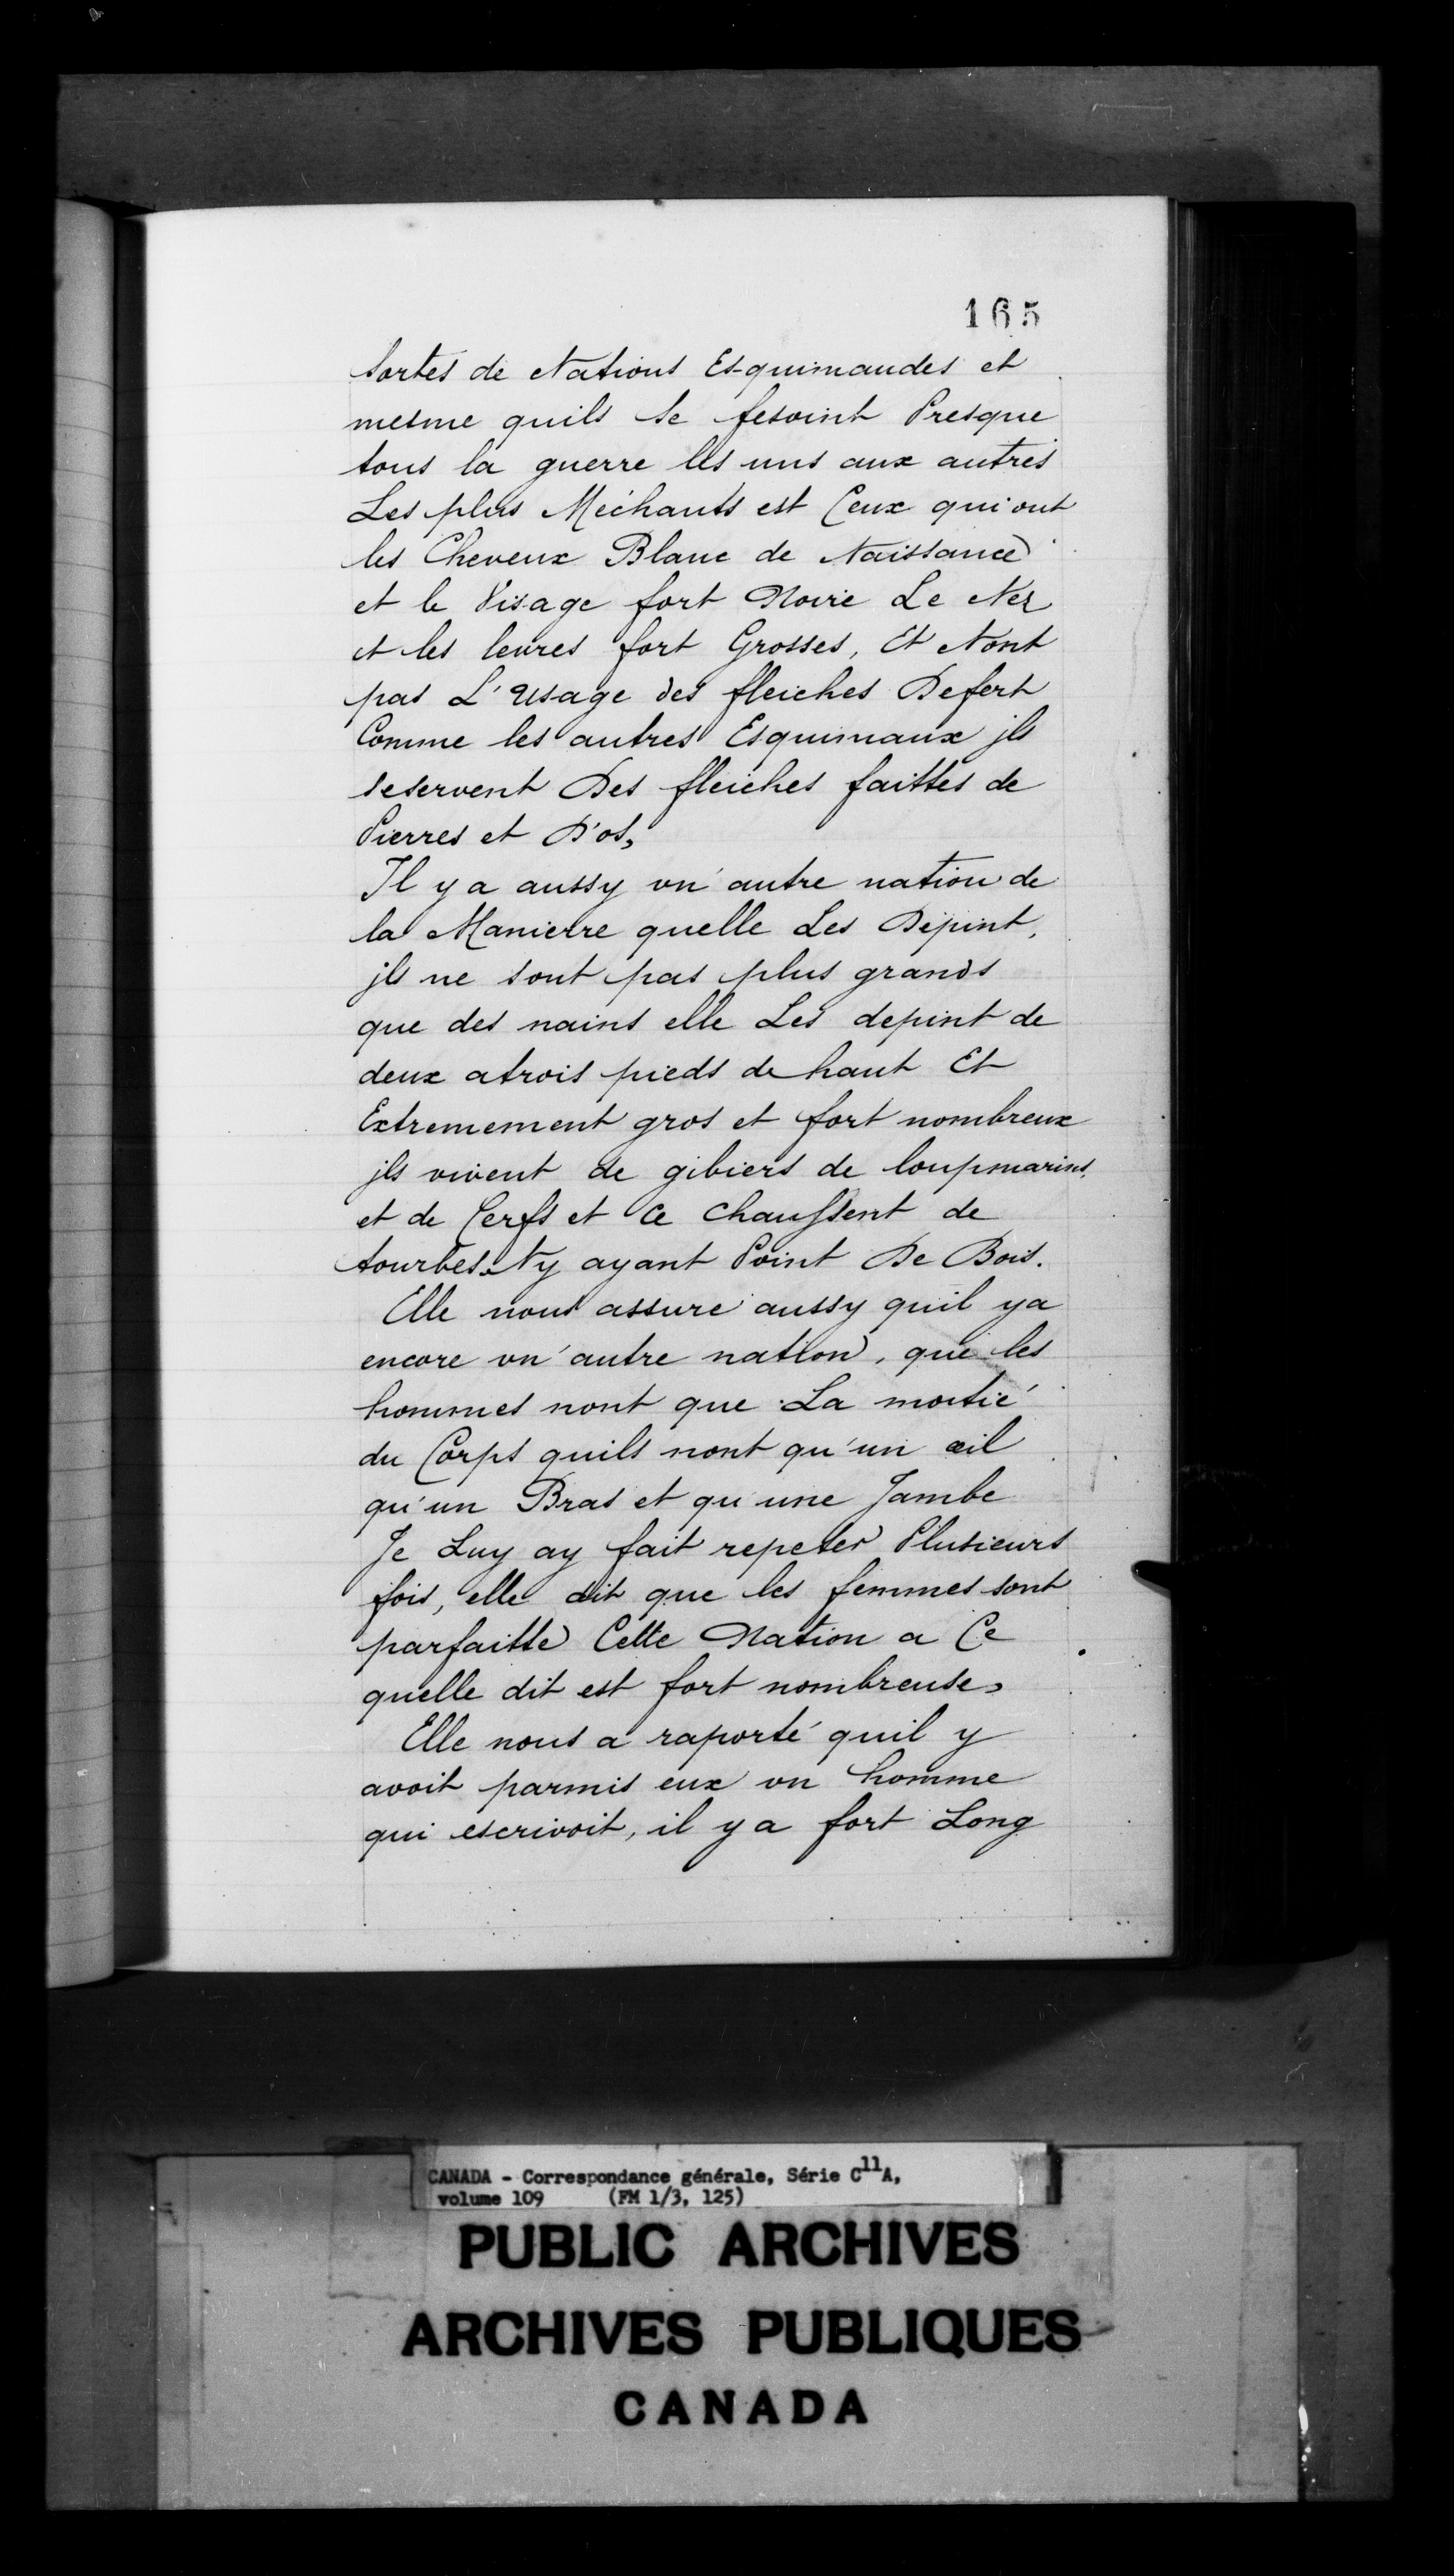 165
sortes de Nations Esquimaudes et
mesme quils se fesoint Presque
tous la guerre les uns aux autres
Les plus Méchants est Ceux qui ont
les Cheveux Blanc de Naissance
et le Visage fort Noire Le Nez
et les levres fort Grosses, Et Nont
pas L'Usage des fleiches Defert
Comme les autres Esquimaux jls
seservent Des fleiches faittes de
Pierres et D'os,
Il y a aussy un autre nation de
la Manierre quelle Les Dépint,
jls ne sont pas plus grands
que des nains elle Les depint de
deux atrois pieds de haut Et
Extremement gros et fort nombreux
jls vivent de gibiers de loupmarins,
et de Cerfs et ce chauffent de
tourbes. Ny ayant Point De Bois.
Elle nous assure aussy quil ya
encore un autre nation, que les
hommes nont que La moitié
du Corps quils nont qu'un œil
qu'un Bras et qu'une Jambe
Je Luy ay fait repeter Plusieurs
fois, elle dit que les femmes sont
parfaitte Cette Nation a Ce
quelle dit est fort nombreuse,
Elle nous a raporté quil y
avoit parmis eux un homme
qui escrivoit, il y a fort Long
CANADA - Correspondance générale, Série C11A,
volume 109 (FM 1/3, 125)
PUBLIC ARCHIVES
ARCHIVES PUBLIQUES
CANADA